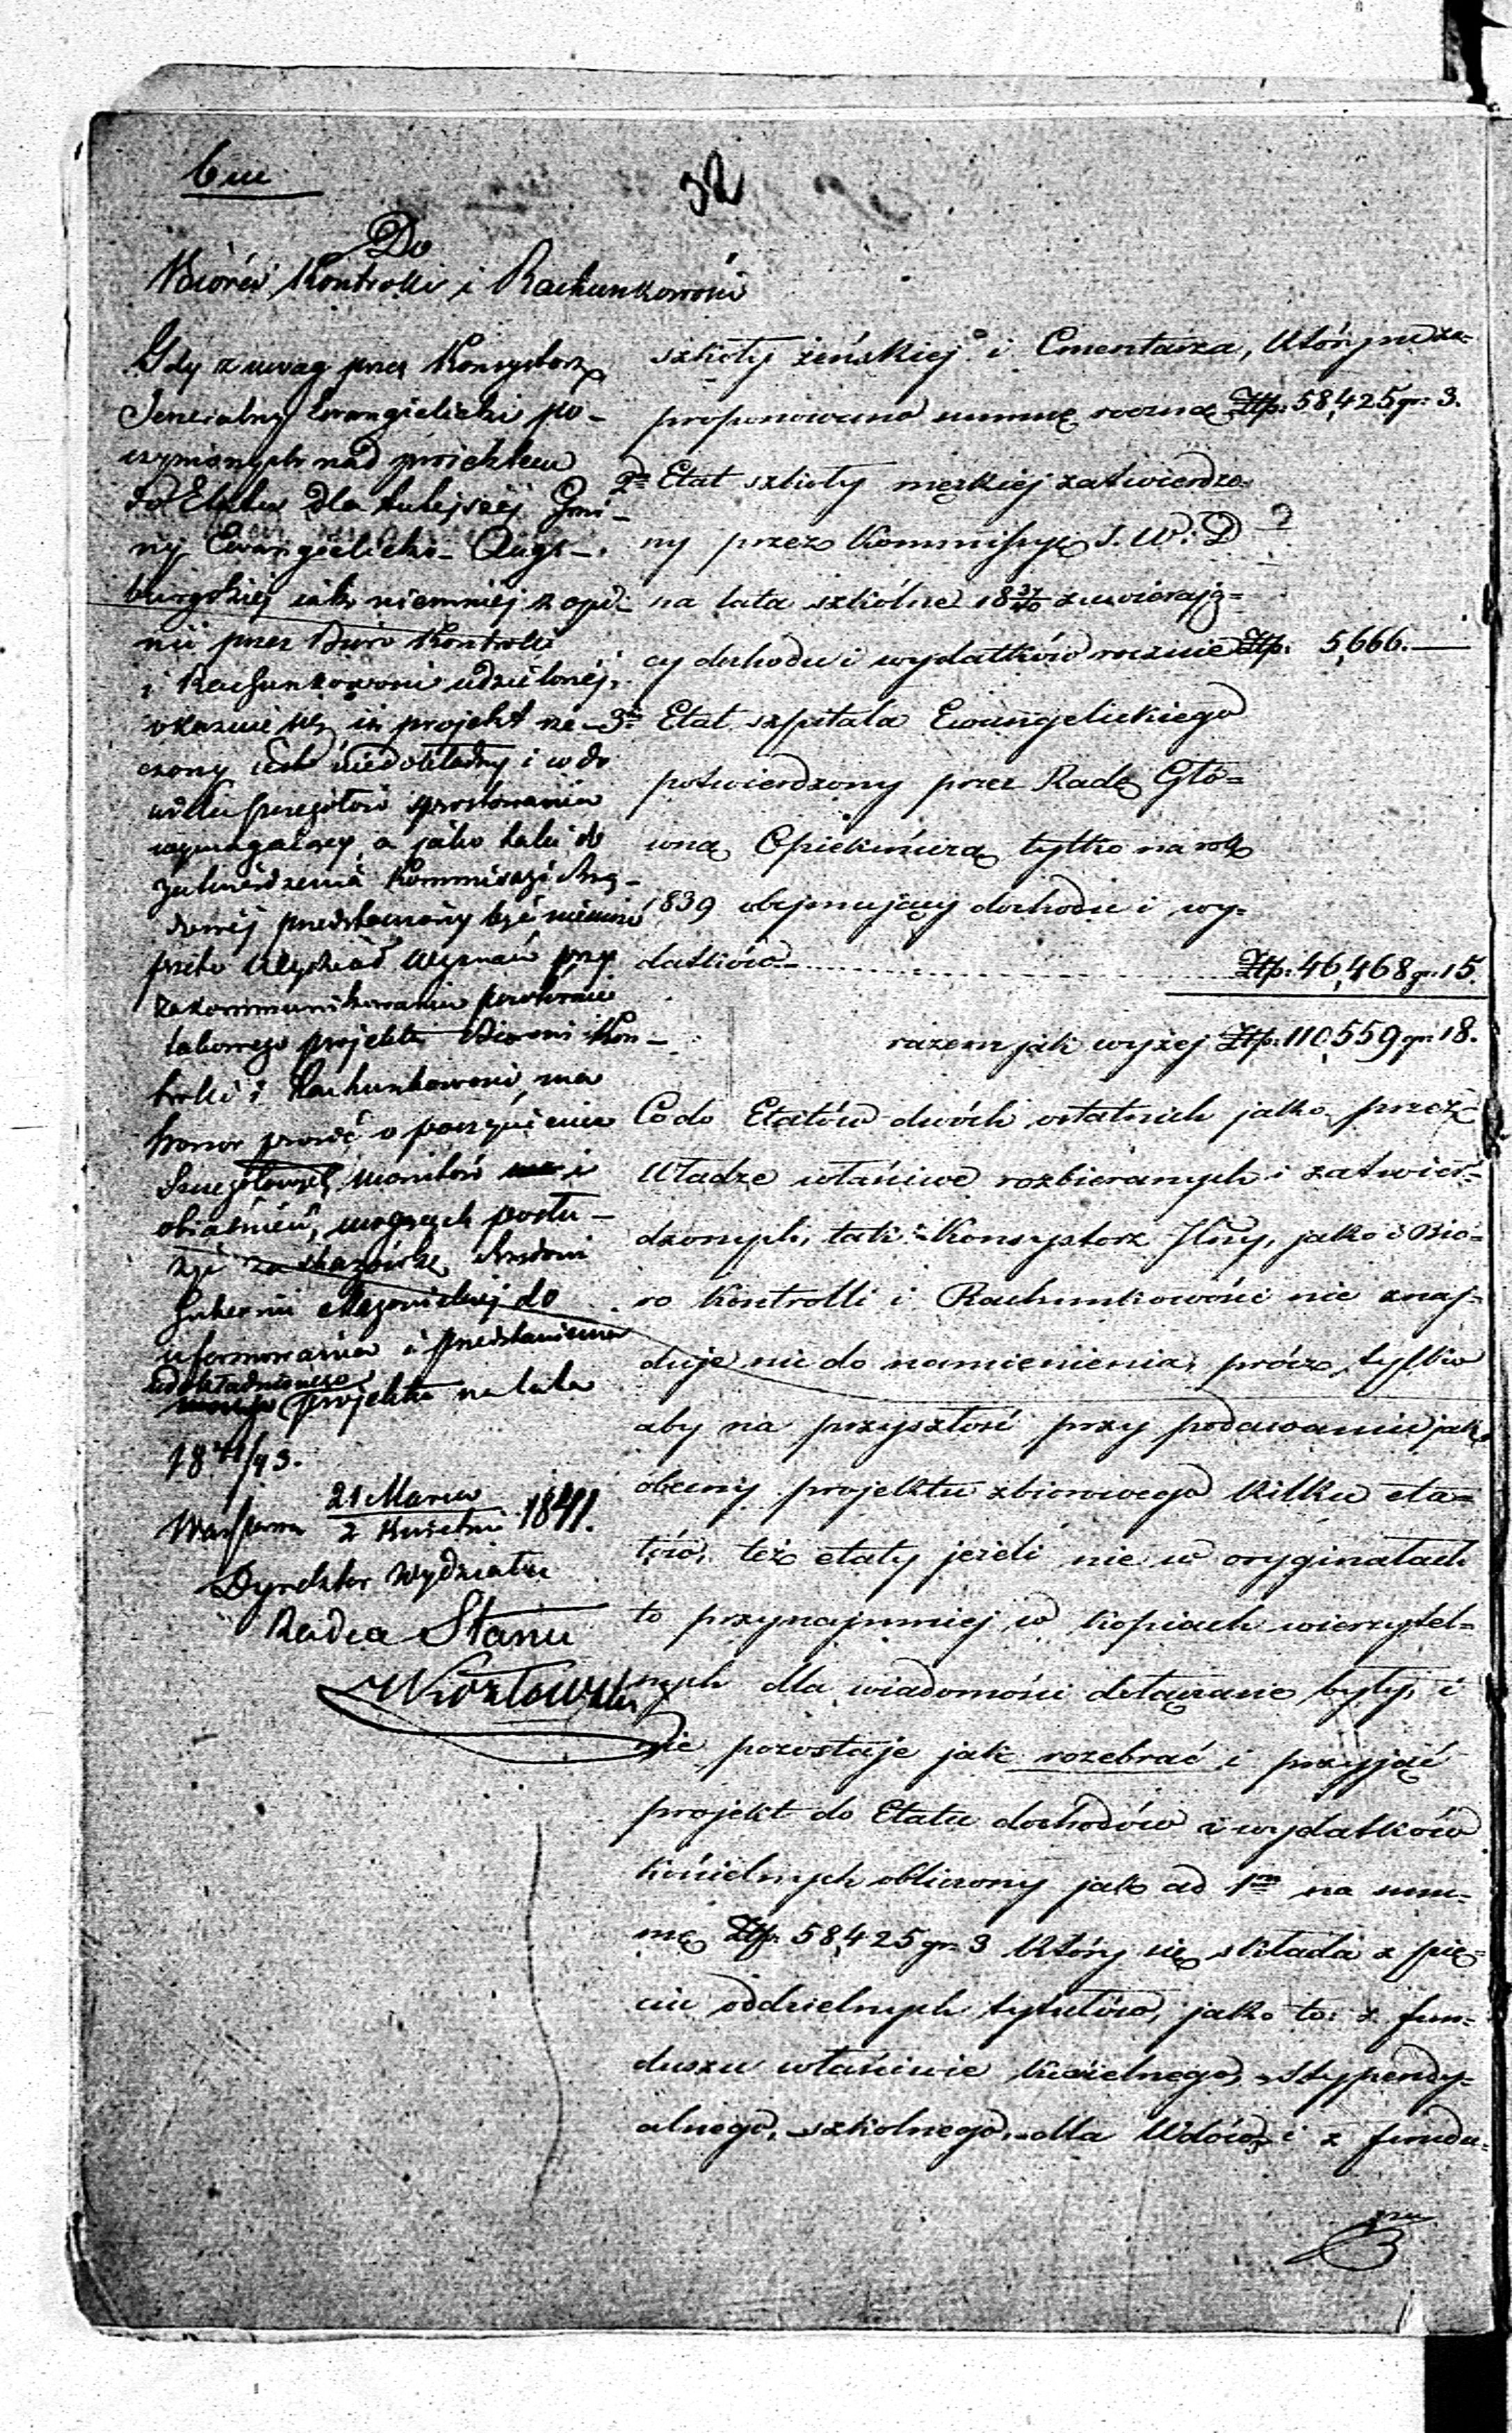 32
Do
Biora Kontrolli i Rachunkowości
Gdy z uwag przez Konsystorz
Jeneralny Ewangielicki po-
czynionych nad projektem
do Etatu dla tutejszej Gmi-
ny Ewangielicko-Augs-
burgskiej jako niemniej z opi-
nii przez Biuro Kontrolli
i Rachunkowości udzielonej,
okazuje się, iż projekt rze-
czony jest niedokładny i co do
wielu szczegółów sprostowania
wymagający, a jako taki do
zatwierdzenia Kommissyi Rzą-
dowej przedstawiony być nie może
przeto Wydział Wyznań przy
zakommunikowaniu powtórnie
takowego projektu Biorowi Kon-
trolli i Rachunkowości, ma
honor prosić o poczynienie
Szczegółowych monitów i
objaśnień, mogących posłu-
żyć za skazówkę Rządowi
Gubernii Mazowieckiej do
uformowania i przedstawienia
udokładnionego
projektu na lata
18 41/43.
Warszawa 21 Marca / 2 Kwietnia 1841.
Dyrektor Wydziału
Radca Stanu
szkoły żeńskiej i Cmentarza, który za-
proponowano summę roczną Złp: 58,425 gr: 3.
2re Etat szkoły męzkiej zatwierdzo-
ny przez Kommissyę S. W. D
na lata szkólne 18 37/40 zawierają-
cy dochodu i wydatków rocznie Złp: 5,666.—
3cie Etat szpitala Ewangelickiego
potwierdzony przez Radę Głó-
wną Opiekuńczą tylko na rok
1839 obejmujący dochodu i wy-
datków Złp: 46,468 gr: 15.
razem jak wyżej Złp: 110,559 gr: 18.
Co do Etatów dwóch ostatnich jako przez
Władze właściwe rozbieranych i zatwier-
dzonych, tak Konsystorz Jlny, jako i Bió-
ro Kontrolli i Rachunkowości nie znaj-
duje nic do namienienia, prócz tylko
aby na przyszłość przy podawaniu jak
obecny projektu zbiorowego kilku eta-
tów, też etaty jeżeli nie w oryginałach
to przynajmniej w kopiach wierzytel-
nych dla wiadomości dołączane były, i
nie pozostaje jak rozebrać i przyjąć
projekt do Etatu dochodów i wydatków
kościelnych obliczony jak ad 1m na sum-
mę Złp. 58,425 gr: 3 który się składa z pię-
ciu oddzielnych tytułów, jako to: z fun-
duszu właściwie kościelnego, stypendy-
alnego, szkolnego, dla Wdów i z fundu-
szu